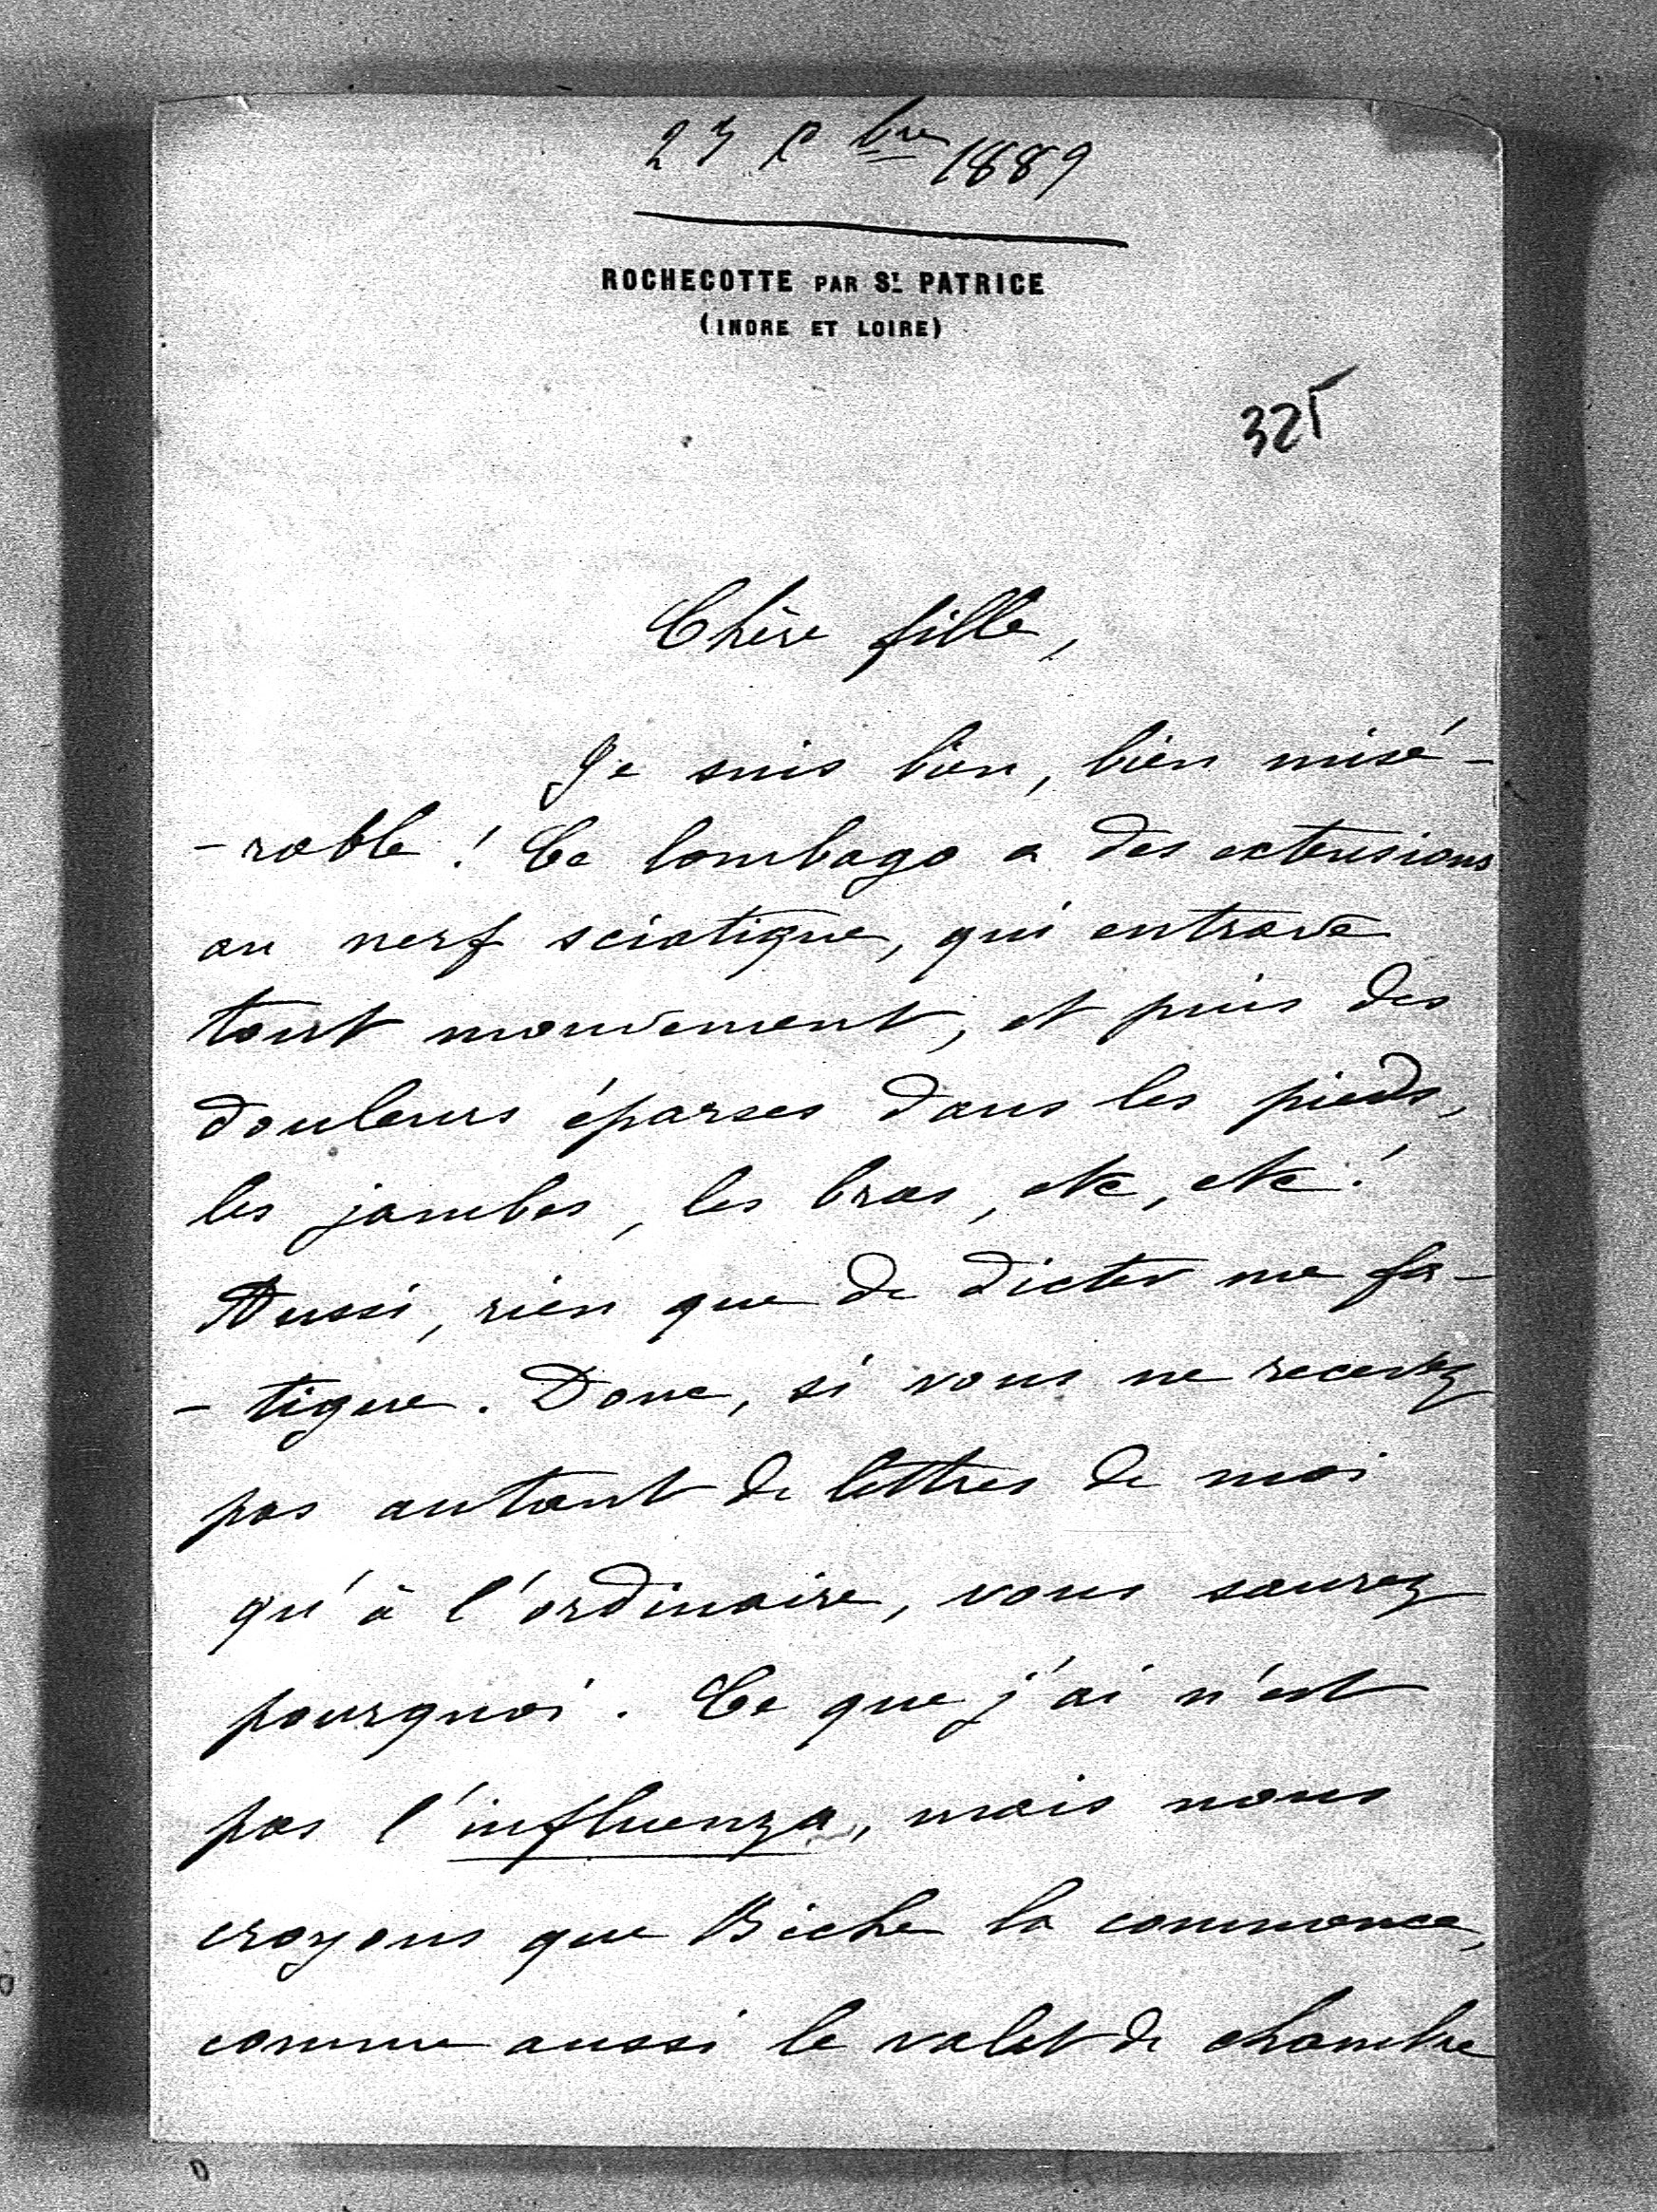 23 Xbre 1889
ROCHECOTTE PAR ST PATRICE
(INDRE ET LOIRE)
325
Chère fille,
Je suis bien, bien misé-
-rable ! Ce lombago a des extensions
au nerf sciatique, qui entrave
tout mouvement, et puis des
douleurs éparses dans les pieds,
les jambes, les bras, etc, etc !
Aussi, rien que de dicter me fa-
-tigue. Donc, si vous ne recevez
pas autant de lettres de moi
qu'à l'ordinaire, vous saurez
pourquoi. Ce que j'ai n'est
pas l'influenza, mais nous
croyons que Biche la commence,
comme aussi le valet de chambre